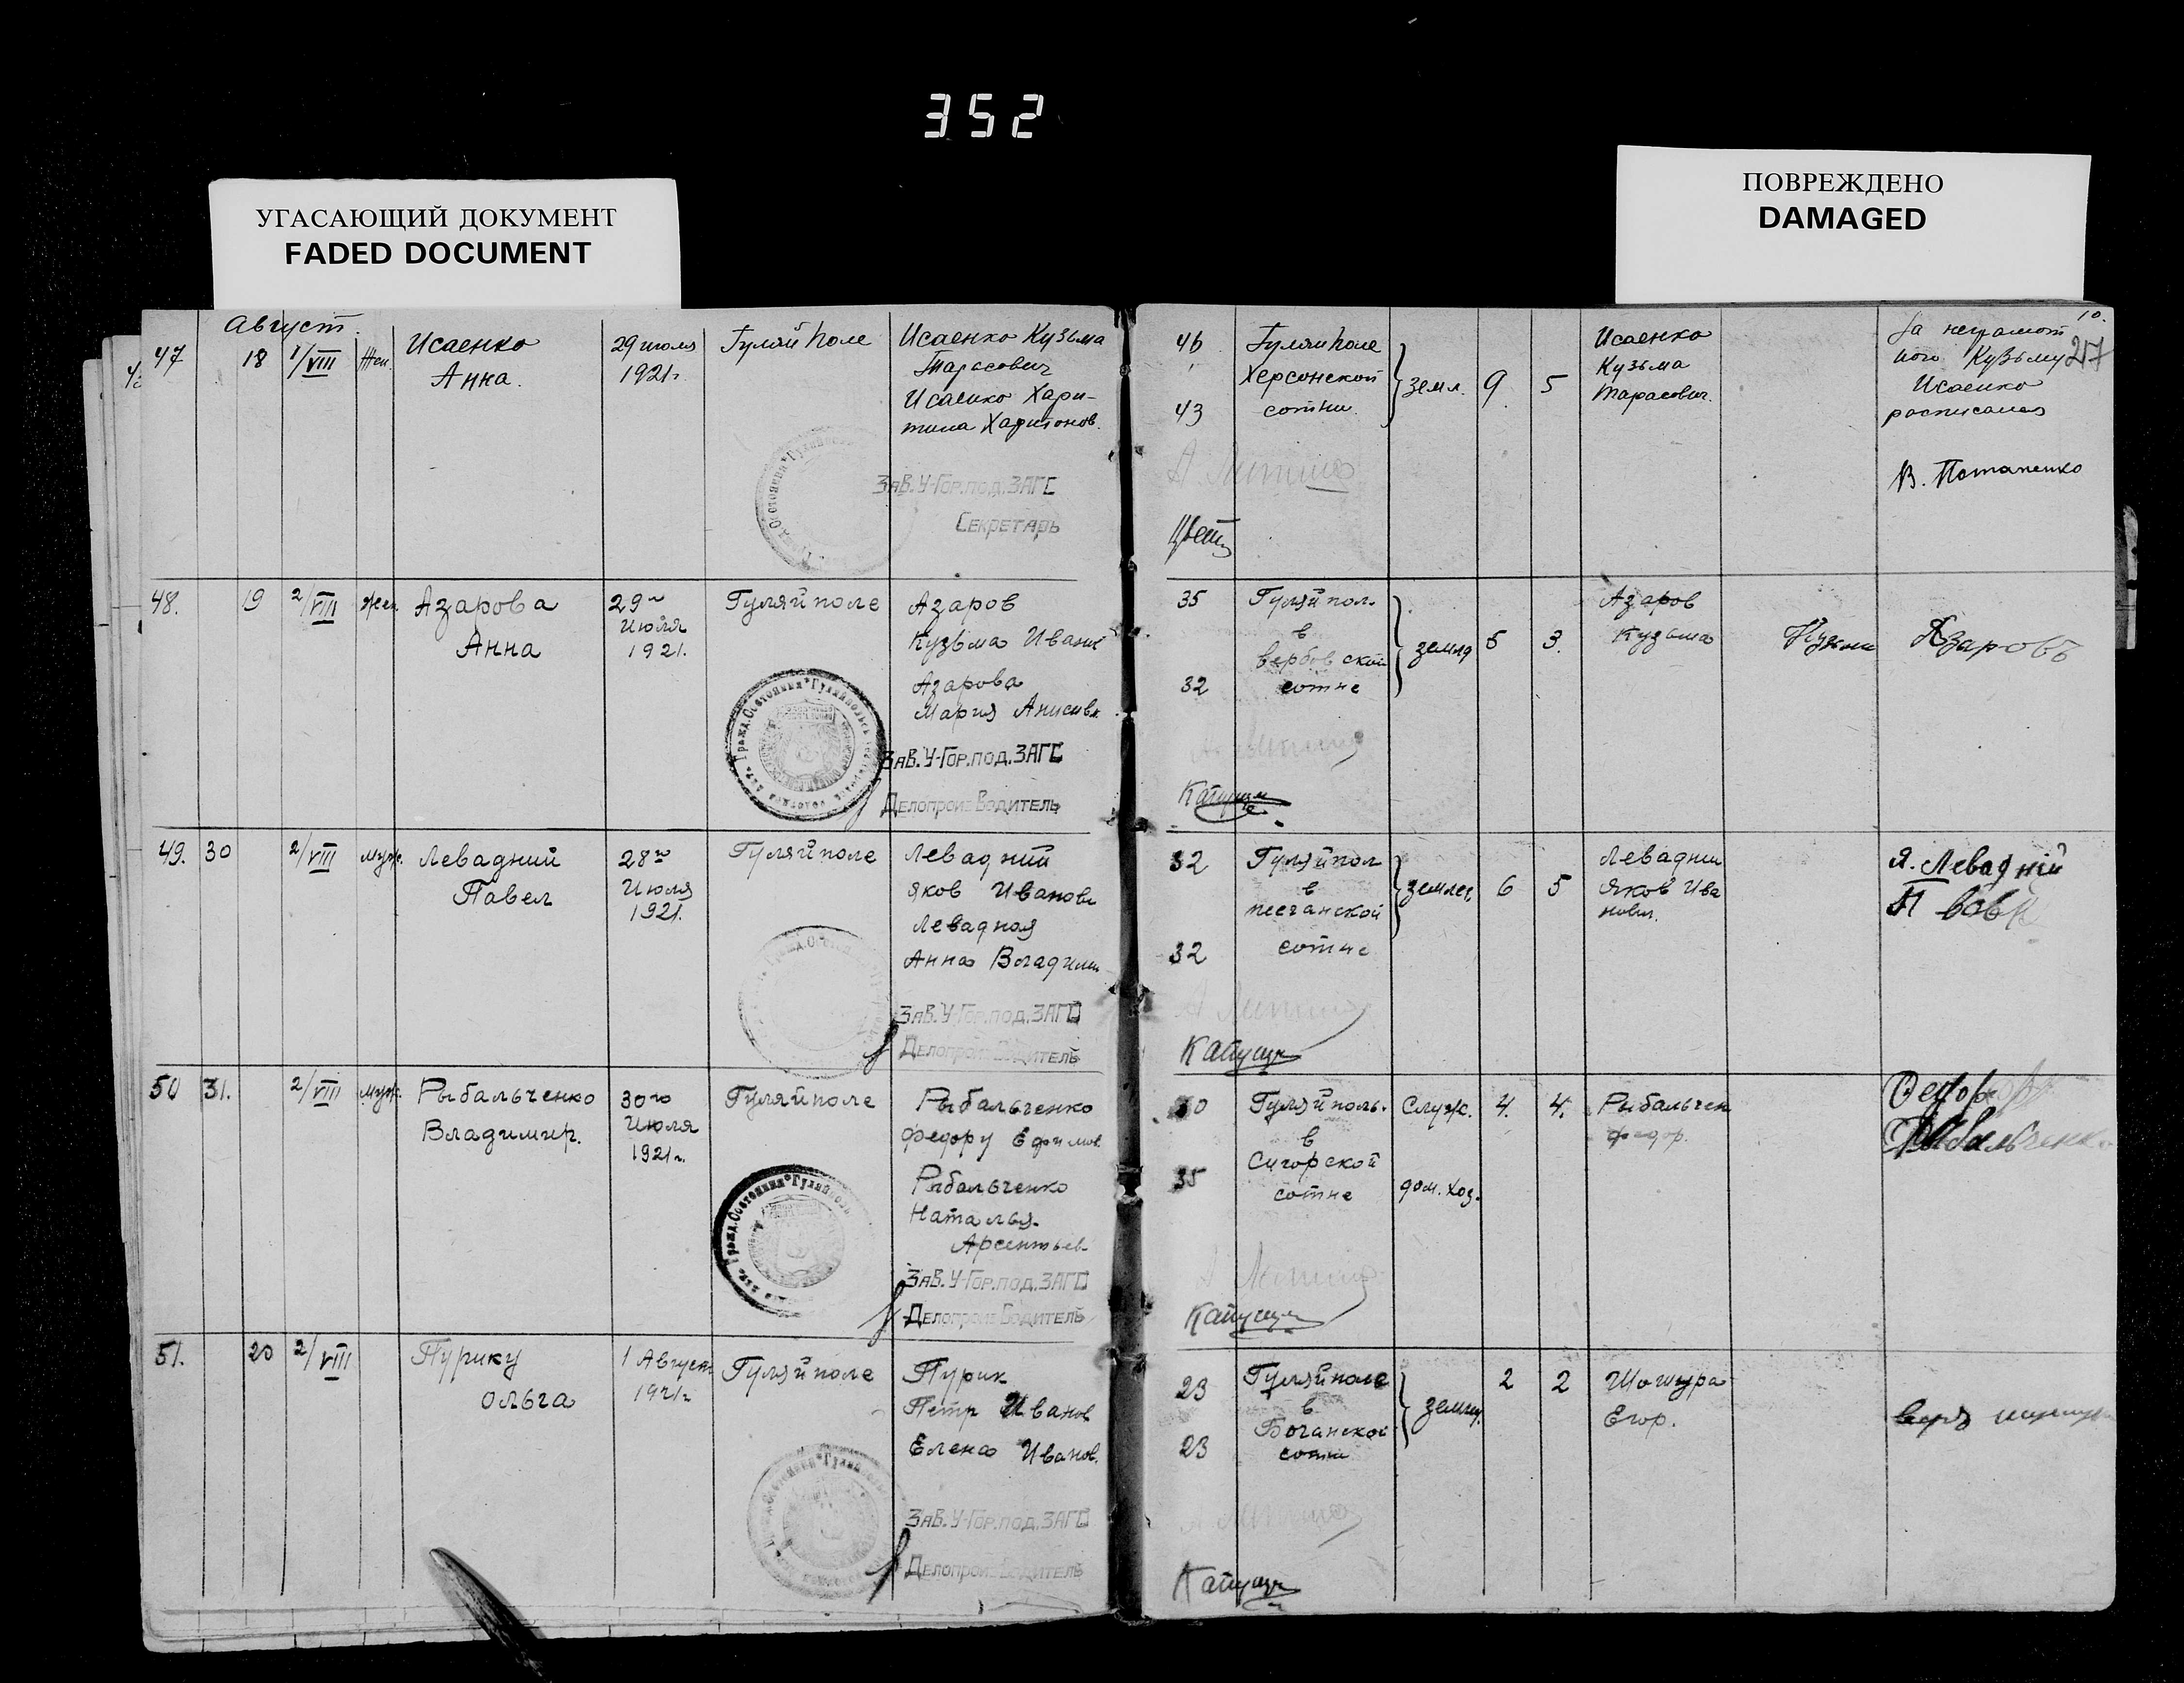 352
УГАСАЮЩИЙ ДОКУМЕНТ
FADED DOCUMENT
ПОВРЕЖДЕНО
DAMAGED
Август.
47 18 1/VIII Жен.
Исаенко
Анна.
29 июля
1921г.
Гуляй поле
Исаенко Кузьма
Тарасович
Исаенко Хари-
тина Харитонов.
Зав. У-Гор.под. ЗАГС
Секретарь
46
43
Гуляй поле
Херсонской
сотни
земл. 9. 5
Исаенко
Кузьма
Тарасович.
10.
За неграмот
ного Кузьму
Исаенко
росписался
В. Потапенко
217
48. 19 2/VIII жен.
Азарова
Анна
29го
Июля
1921.
Гуляйполе
Азаров
Кузьма Иванов
Азарова
Мария
Зав. У-Гор.под. ЗАГС
Делопроизводитель
35
32
Гуляйпол.
в
вербовской
сотне
землд 5 3.
Азаров
Кузьма
Азаровъ
49. 30 2/VIII муж.
Левадний
Павел
28го
Июля
1921.
Гуляйполе
Левадний
Яков Иванов
Левадная
Анна Владими
Зав. У-Гор.под. ЗАГС
Делопроизводитель
32
32
Гуляйпол
в
песчанской
сотне
6 5
Левадни
Яков Ива
нович.
Я. Левадній
50 31. 2/VIII муж.
Рыбальченко
Владимир.
30го
Июля
1921г.
Гуляйполе
Рыбальченко
Федору Ефимов.
Рыбальченко
Наталья
Арсентьев.
Зав. У-Гор.под. ЗАГС
Делопроизводитель
35
Гуляйполь.
в
сотне
Служ. 4. 4.
дом. хоз.
Рыбальчен
Федор.
Федор
Рыбальченко
51. 20 2/VIII
Пурику
Ольга
1 Август
1921г.
Гуляйполе
Пурик
Петр Иванов
Елена Иванов.
Зав. У-Гор.под. ЗАГС
Делопроизводитель
23
23
Гуляйполе
в
сотни
2 2
Егор.